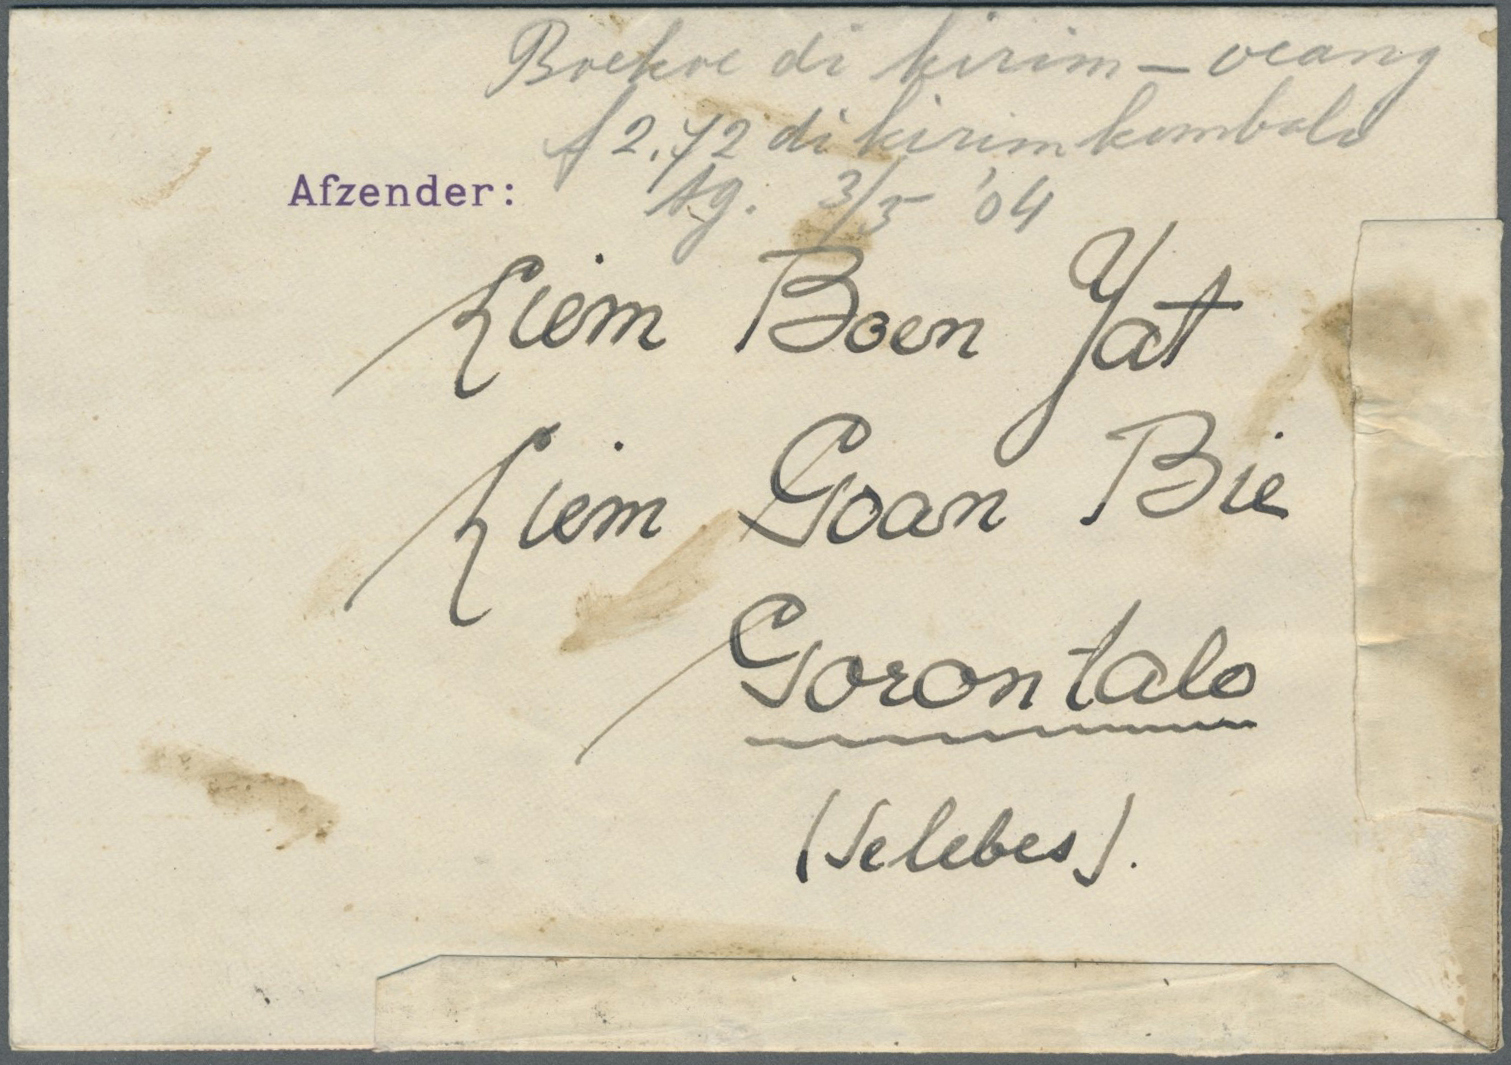 Boekoe di kirim — oeang
f 2.72 di kirim kembali
tg. 3/5 '04
Afzender:
Liem Boen Yat
Liem Goan Bie
Gorontalo
(Selebes).